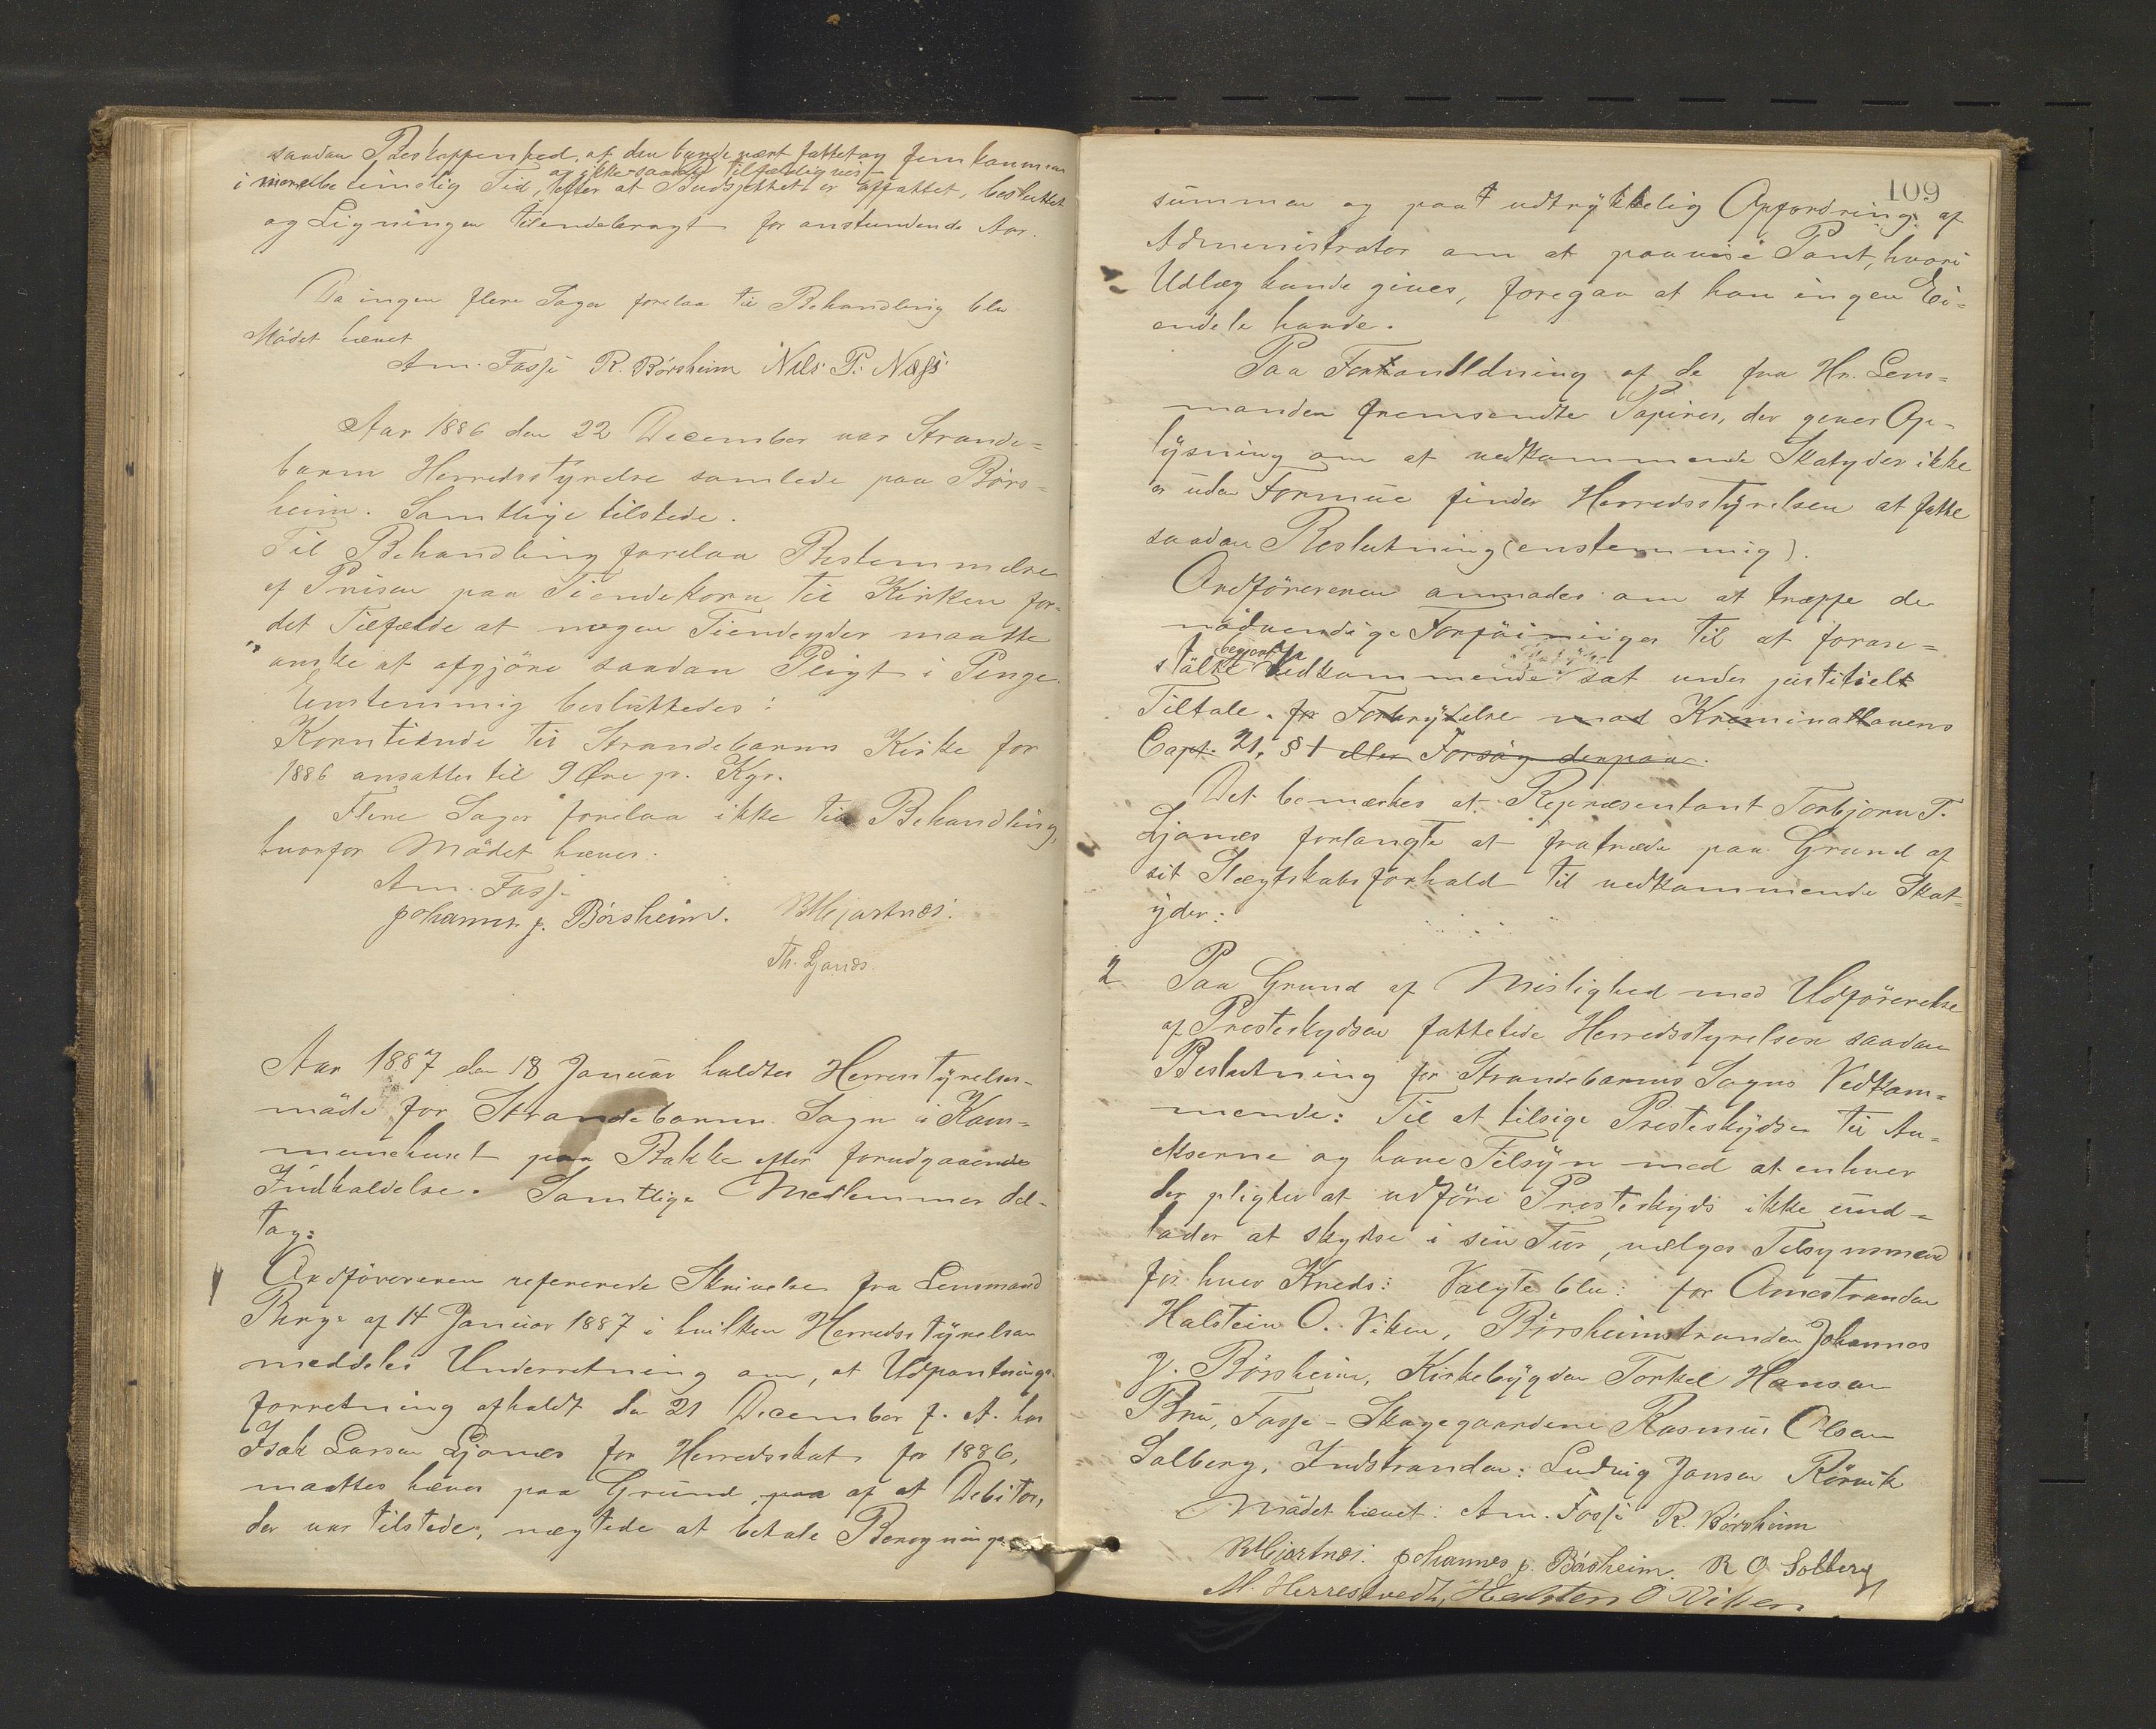 saadan Beskaffenhed, at den burde vært fattet og fremkommen
og ikke saadan tilfældigvis
i mindelig Tid, efter at Budsjettet er affattet, besluttet
og Ligningen tilendebragt for anstundende Aar.
Da ingen flere Sager forelaa til Behandling blev
Mödet hævet
Am. Fosse R. Börsheim Nils P. Næss
Aar 1886 den 22 December var Strande=
barm Herredsstyrelse samlede paa Börs=
heim. Samtlige tilstede.
Til Behandling forelaa Bestemmelse
af Prisen paa Tiendekorn til Kirken for=
det Tilfælde at nogen Tiendeyder maatte
önske at afgjöre saadan Pligt i Penge.
Enstemmig besluttedes:
Korntiende til Strandebarms Kirke for
1886 ansattes til 9 Öre pr. Kgr.
Flere Sager forelaa ikke til Behandling,
hvorfor Mödet hæves.
Am. Fosse
Johannes J. Börsheim. B Hjartnes.
Th. Ljones.
Aar 1887 den 18 Januar holdtes Herredstyrelses-
möde for Strandebarms Sogn i Kom=
munehuset paa Bakke efter forudgaaende
Indkaldelse. Samtlige Medlemmer del-
tog:
1 Ordföreren refererede Skrivelse fra Lensmand
Berge af 14 Januar 1887 i hvilken Herredsstyrelsen
meddeles Underretning om, at Udpantnings-
forretning afholdt den 21 December f. A. hos
Isak Larsen Ljones for Herredsskat for 1886,
maattes hæves paa Grund paa af at Debitor,
der var tilstede, nægtede at betale Beregnings=
109
summen og paa udtrykkelig Opfordring af
Administrator om at paavise Pant, hvori
Udlæg kunde gives, foregav at han ingen Ei=
endele havde.
Paa Foranledning af de fra Hr. Lens=
manden fremsendte Papirer, der giver Op-
lysning om at vedkommende Skatyder ikke
er uden Formue finder Herredsstyrelsen at fatte
saadan Beslutning (enstemmig).
Ordföreren anmodes om at træffe de
nödvendige Forföininger til at foran=
stalte begjert Vedkommende sat under justitielt
Tiltale. for Forbrydelse mod Kriminallovens
Capt. 21, § 1 eller Forsög derpaa.
Det bemærkes at Repræsentant Torbjorn T.
Ljones forlangte at fratræde paa Grund af
sit Slægtskabsforhold til vedkommende Skat=
yder:
2 Paa Grund af Mislighed med Udförelse
af Presteskydsen fattede Herredsstyrelsen saadan
Beslutning for Strandebarms Sogns Vedkom=
mende: Til at tilsige Presteskydsen til An=
ekserne og have Tilsyn med at enhver
der pligter at udföre Presteskyds ikke und=
lader at skydse i sin Tur, vælges Tilsynsmænd
for hver Kreds: Valgte blev: for Omestranden
Halstein O. Viken, Börsheimstranden Johannes
J. Börsheim, Kirkebygden Torkel Hansen
Bru, Fosse-Skogegaardene Rasmus Olsen
Solberg, Indstranden: Ludvig Jansen Rörvik
Mödet hævet: Am. Fosse R. Börsheim
B Hjartnes. Johannes J. Börsheim. R O Solberg
M. Herrestvedt, Halsten O Viken